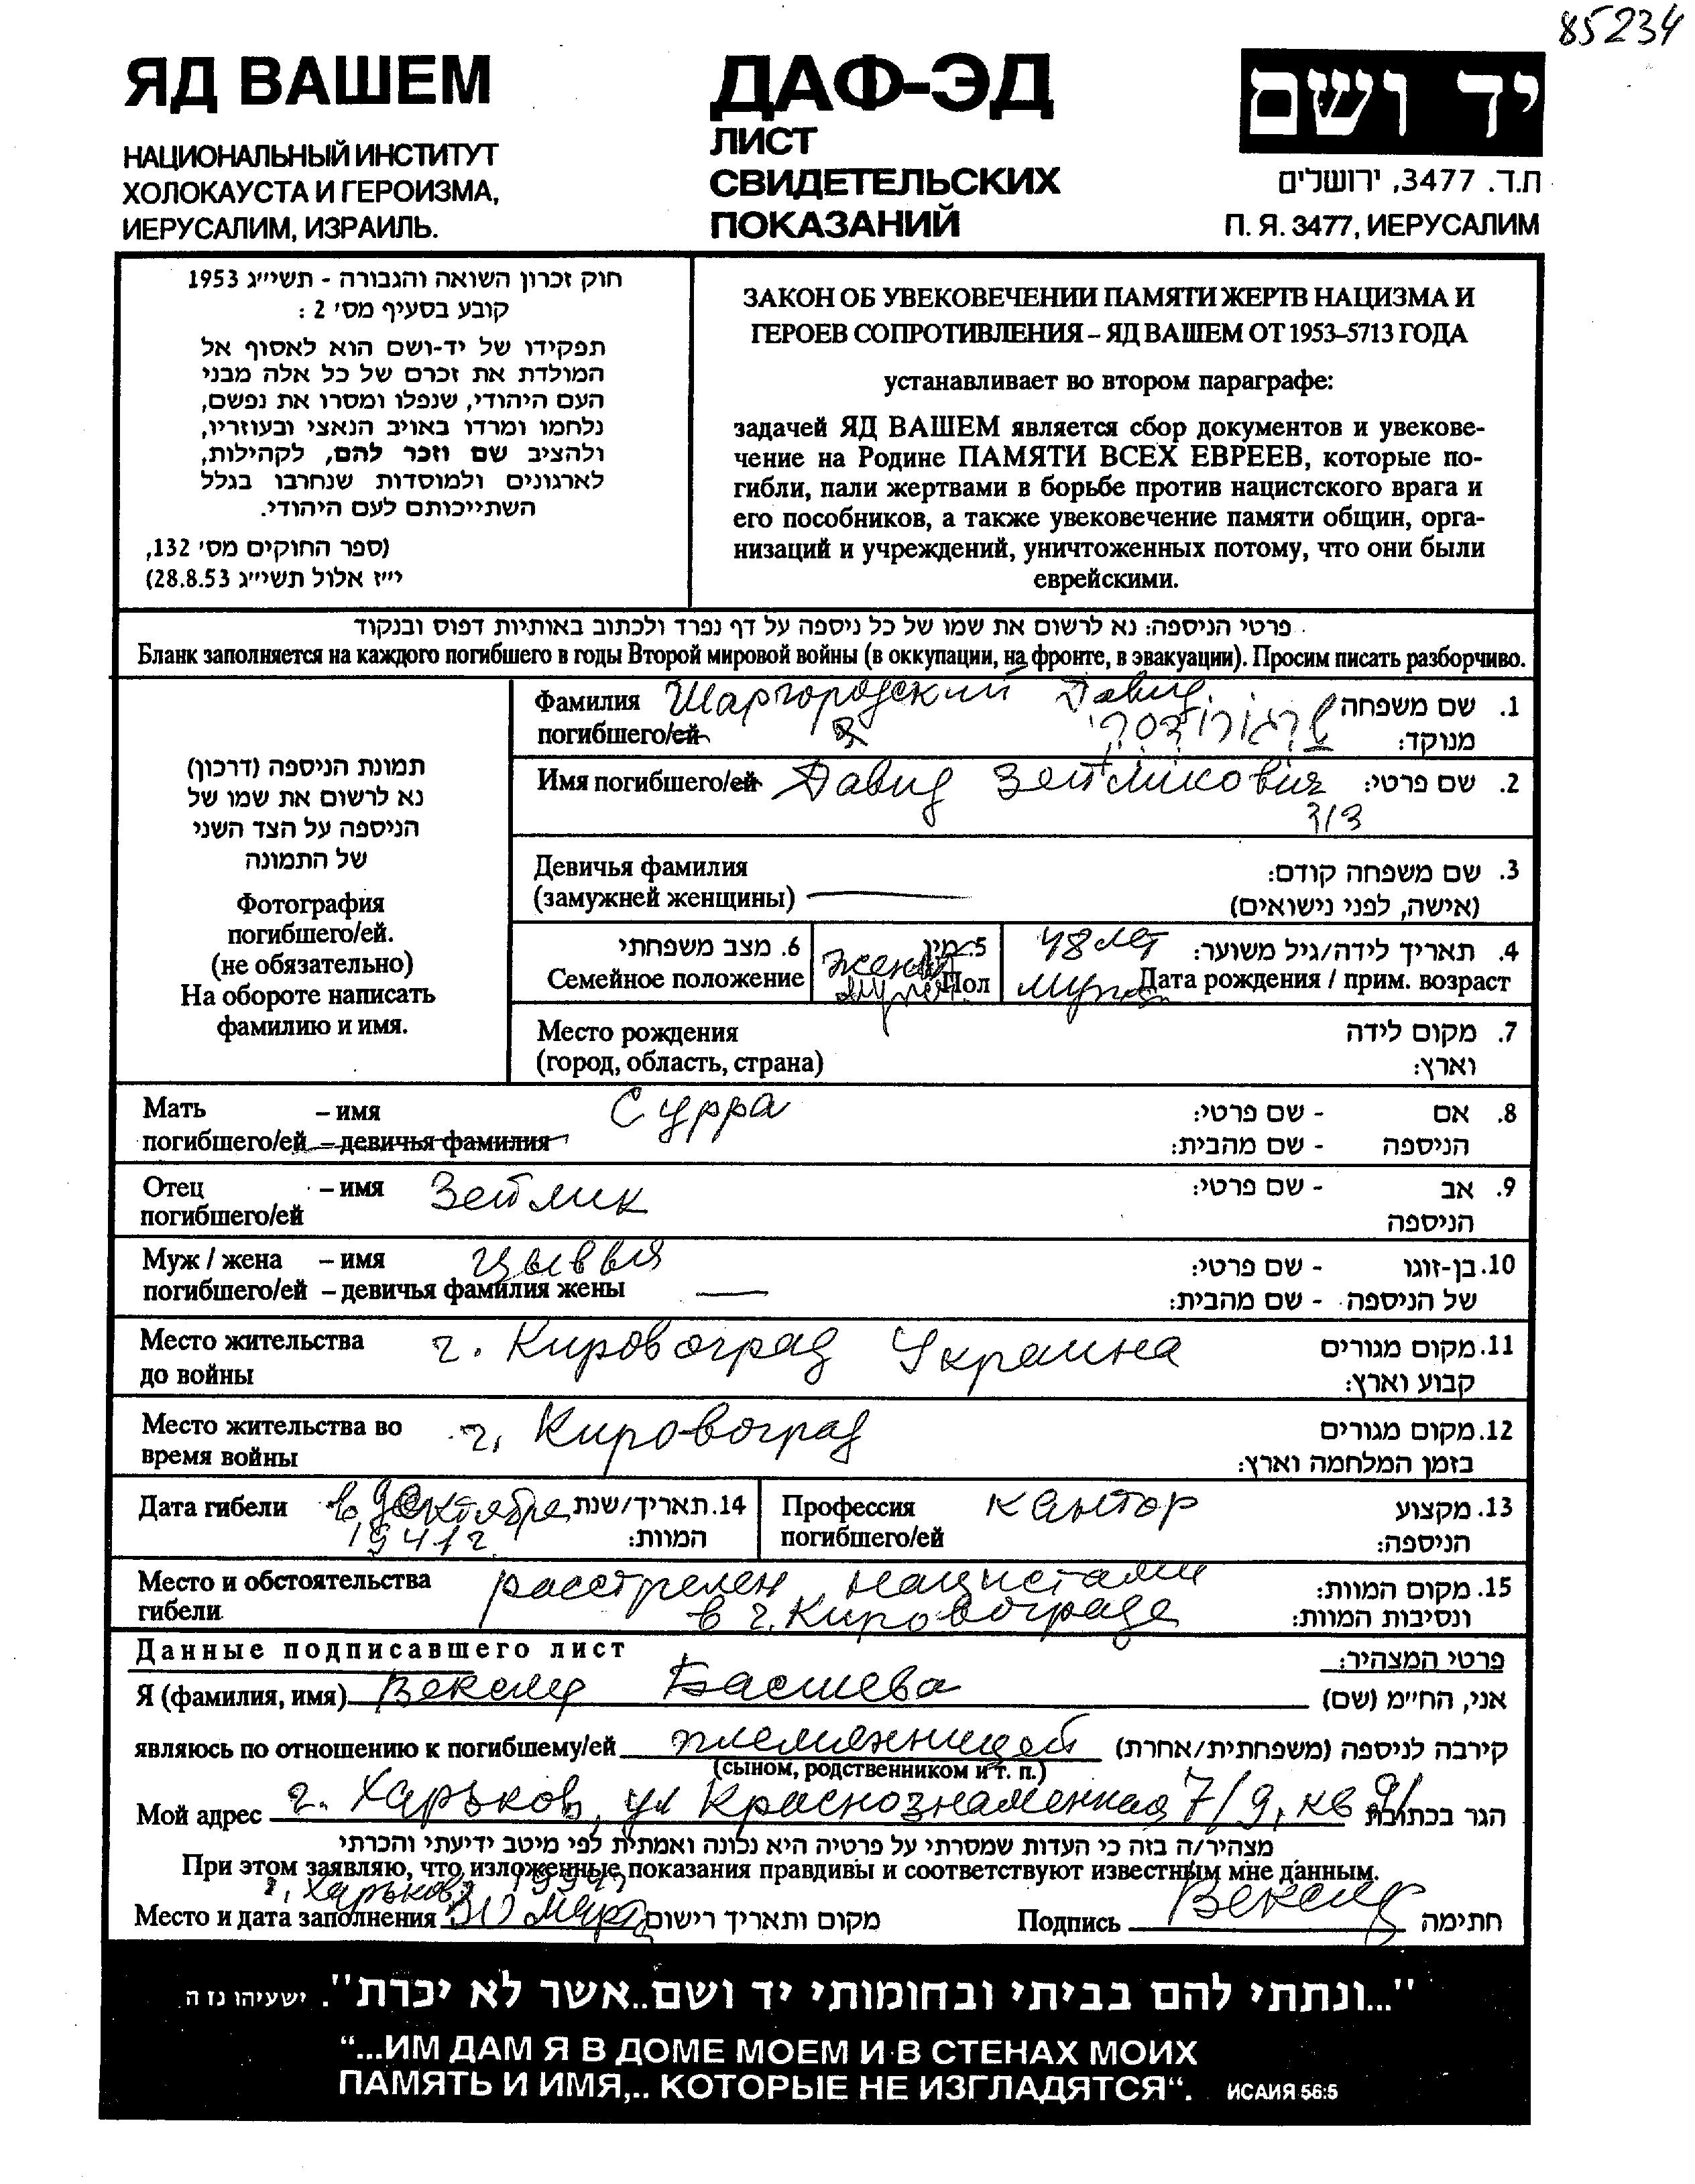 85234
ЯД ВАШЕМ
НАЦИОНАЛЬНЫЙ ИНСТИТУТ
ХОЛОКАУСТА И ГЕРОИЗМА,
ИЕРУСАЛИМ, ИЗРАИЛЬ.
ДАФ-ЭД
ЛИСТ
СВИДЕТЕЛЬСКИХ
ПОКАЗАНИЙ
יד ושם
ת.ד. 3477, ירושלים
П. Я. 3477, ИЕРУСАЛИМ
חוק זכרון השואה והגבורה - תשי״ג 1953
קובע בסעיף מס׳ 2 :
תפקידו של יד-ושם הוא לאסוף אל
המולדת את זכרם של כל אלה מבני
העם היהודי, שנפלו ומסרו את נפשם,
נלחמו ומרדו באויב הנאצי ובעוזריו,
ולהציב שם וזכר להם, לקהילות,
לארגונים ולמוסדות שנחרבו בגלל
השתייכותם לעם היהודי.
(ספר החוקים מס׳ 132,
י״ז אלול תשי״ג 28.8.53)
ЗАКОН ОБ УВЕКОВЕЧЕНИИ ПАМЯТИ ЖЕРТВ НАЦИЗМА И
ГЕРОЕВ СОПРОТИВЛЕНИЯ – ЯД ВАШЕМ ОТ 1953–5713 ГОДА
устанавливает во втором параграфе:
задачей ЯД ВАШЕМ является сбор документов и увекове-
чение на Родине ПАМЯТИ ВСЕХ ЕВРЕЕВ, которые по-
гибли, пали жертвами в борьбе против нацистского врага и
его пособников, а также увековечение памяти общин, орга-
низаций и учреждений, уничтоженных потому, что они были
еврейскими.
פרטי הניספה: נא לרשום את שמו של כל ניספה על דף נפרד ולכתוב באותיות דפוס ובנקוד
Бланк заполняется на каждого погибшего в годы Второй мировой войны (в оккупации, на фронте, в эвакуации). Просим писать разборчиво.
תמונת הניספה (דרכון)
נא לרשום את שמו של
הניספה על הצד השני
של התמונה
Фотография
погибшего/ей.
(не обязательно)
На обороте написать
фамилию и имя.
Фамилия Шаргородский Давид 1. שם משפחה
погибшего/ей שרגורודסקי מנוקד:
Имя погибшего/ей Давид Зейликович 2. שם פרטי:
דוד
Девичья фамилия 3. שם משפחה קודם:
(замужней женщины) (אישה, לפני נישואים)
6. מצב משפחתי 5. מין 48 лет 4. תאריך לידה/גיל משוער:
Семейное положение женат Пол Дата рождения / прим. возраст
Место рождения 7. מקום לידה
(город, область, страна) וארץ:
Мать – имя Сурра 8. אם - שם פרטי:
погибшего/ей – девичья фамилия הניספה - שם מהבית:
Отец – имя Зейлик 9. אב - שם פרטי:
погибшего/ей הניספה
Муж / жена – имя Цывья 10. בן-זוגו - שם פרטי:
погибшего/ей – девичья фамилия жены של הניספה - שם מהבית:
Место жительства г. Кировоград Украина 11. מקום מגורים
до войны קבוע וארץ:
Место жительства во г. Кировоград 12. מקום מגורים
время войны בזמן המלחמה וארץ:
Дата гибели в октябре 14. תאריך/שנת Профессия кантор 13. מקצוע
1941 г. המוות: погибшего/ей הניספה:
Место и обстоятельства расстрелен нацистами 15. מקום המוות:
гибели в г. Кировограде ונסיבות המוות:
Данные подписавшего лист פרטי המצהיר:
Я (фамилия, имя) Векслер Басшева אני, הח״מ (שם)
являюсь по отношению к погибшему/ей племянницей קירבה לניספה (משפחתית/אחרת)
(сыном, родственником и т. п.)
Мой адрес г. Харьков, ул Краснознаменная 7/9, кв 91 הגר בכתובת
מצהיר/ה בזה כי העדות שמסרתי על פרטיה היא נכונה ואמתית לפי מיטב ידיעתי והכרתי
При этом заявляю, что изложенные показания правдивы и соответствуют известным мне данным.
г. Харьков
Место и дата заполнения 30 Марта מקום ותאריך רישום Подпись Векслер חתימה
"...ונתתי להם בביתי ובחומותי יד ושם..אשר לא יכרת". ישעיהו נז ה
“...ИМ ДАМ Я В ДОМЕ МОЕМ И В СТЕНАХ МОИХ
ПАМЯТЬ И ИМЯ,.. КОТОРЫЕ НЕ ИЗГЛАДЯТСЯ“. ИСАИЯ 56:5